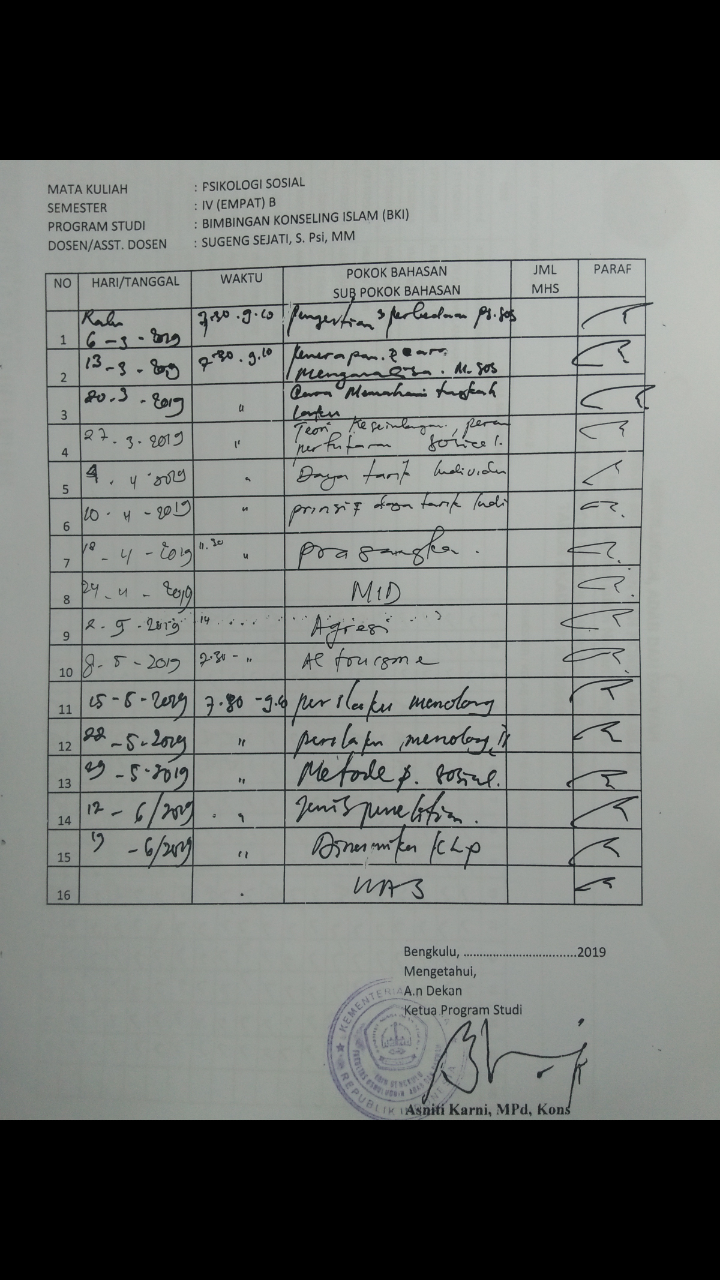 MATA KULIAH : PSIKOLOGI SOSIAL
SEMESTER : IV (EMPAT) B
PROGRAM STUDI : BIMBINGAN KONSELING ISLAM (BKI)
DOSEN/ASST. DOSEN : SUGENG SEJATI, S. Psi, MM
NO HARI/TANGGAL WAKTU POKOK BAHASAN SUB POKOK BAHASAN JML MHS PARAF
Rabu
1 6 - 3 - 2019 7.30 - 9.10 pengertian perbedaan ps. sos
2 13 - 3 - 2019 7.30 - 9.10 penerapan
menganalisa
3 20 - 3 - 2019 " Cara Memahami tingkah
laku
4 27 - 3 - 2019 " Teori Keseimbangan, peran
pertukaran
5 4 - 4 2019 " Daya tarik Individu
6 10 - 4 - 2019 " prinsip daya tarik Indi
7 - 4 - 2019 " prasangka.
8 24 - 4 - 2019 MID
9 2 - 5 - 2019 Agresi
10 8 - 5 - 2019 7.30 - " Altourisme
11 15 - 5 - 2019 7.30 - 9.10 perilaku menolong
12 22 - 5 - 2019 " perilaku menolong II
13 29 - 5 - 2019 " Metode p. sosial.
14 12 - 6/2019 " Jenis penelitian.
15 19 - 6/2019 " Dinamika KLP
16 UAS
Bengkulu, ..................................2019
Mengetahui,
A.n Dekan
Ketua Program Studi
KEMENTERIA
REPUBLIK I
Asniti Karni, MPd, Kons